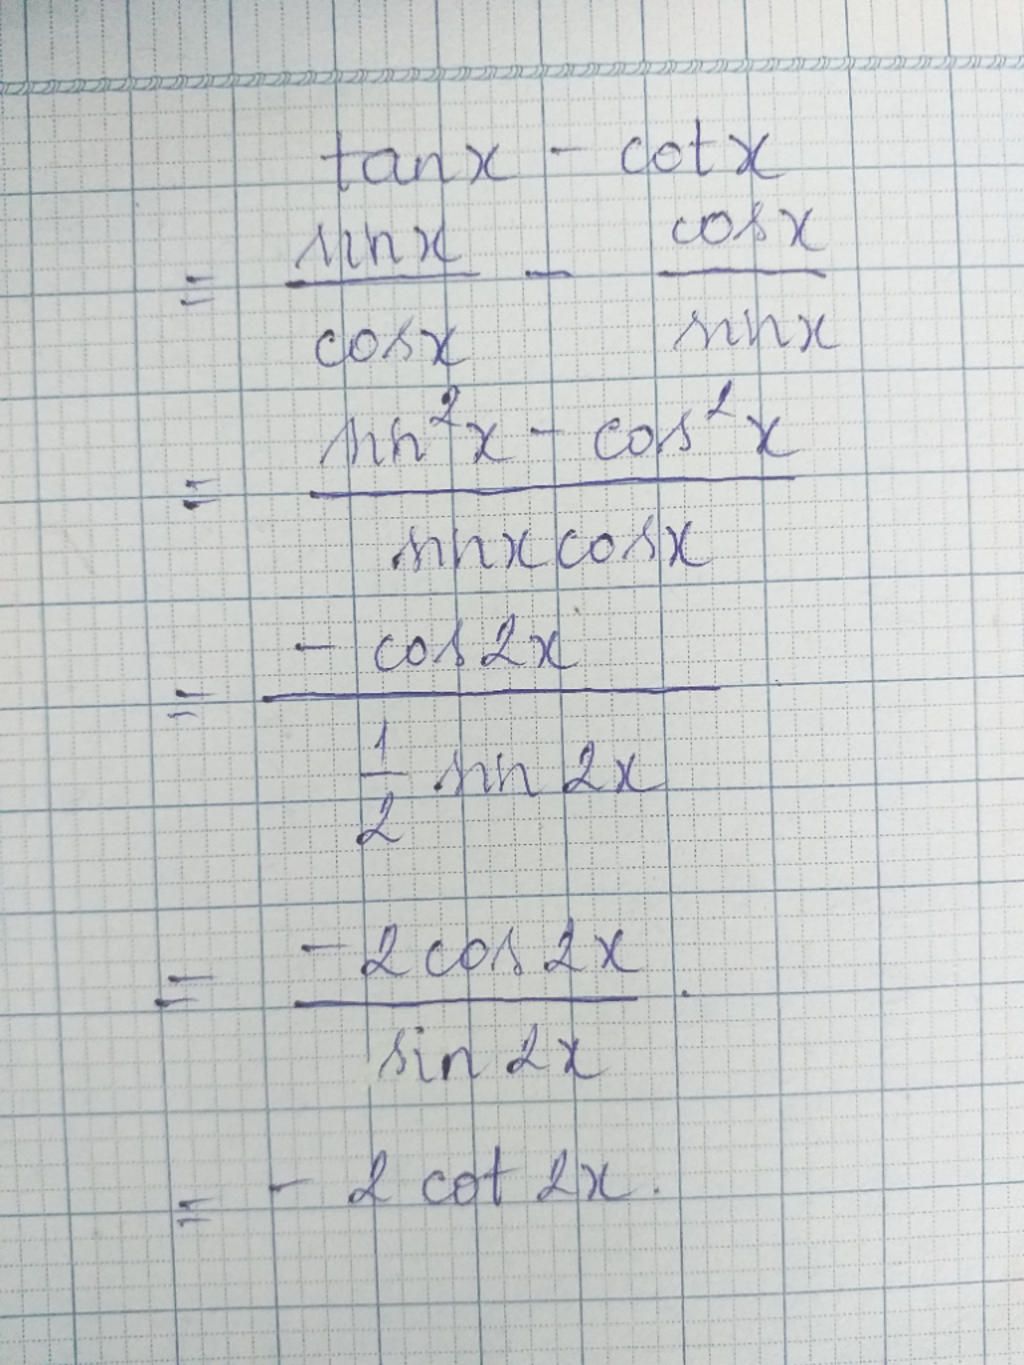 tanx - cotx
= sinx/cosx - cosx/sinx
= sin²x - cos²x/sinxcosx
= - cos2x/½ sin2x
= - 2cos2x/sin2x.
= - 2 cot 2x.